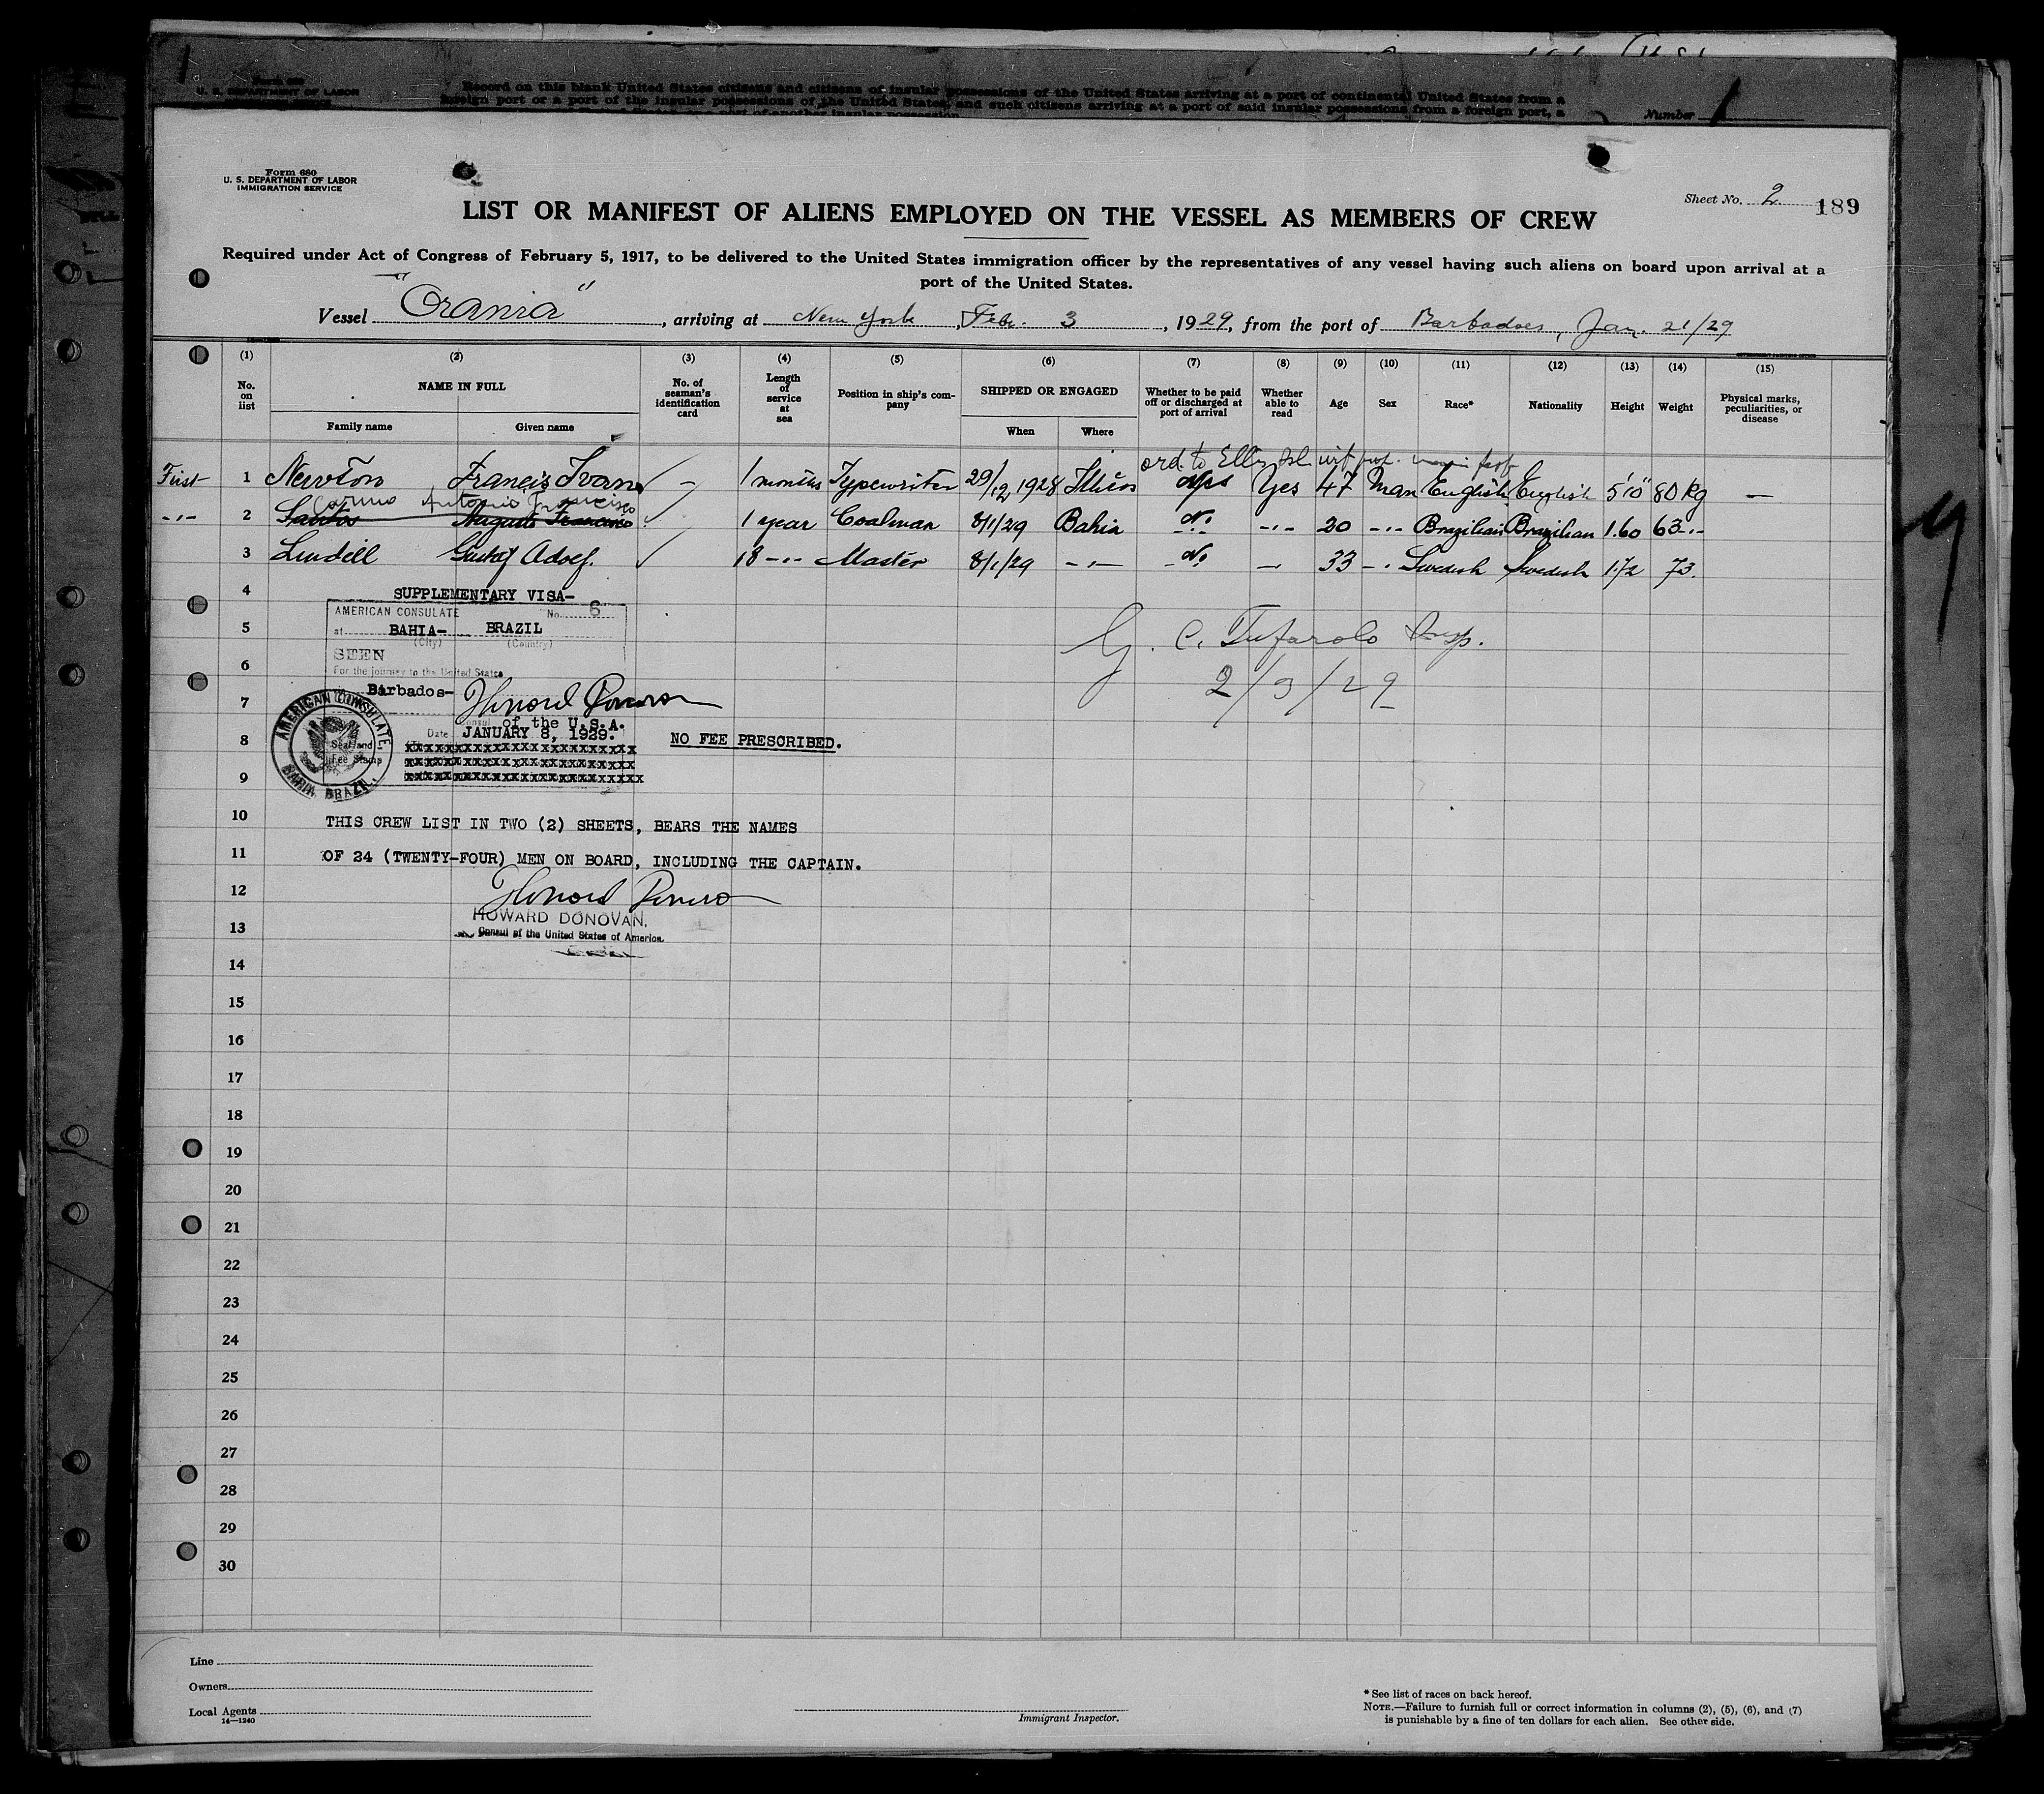 1
Form 630
U. S. DEPARTMENT OF LABOR
Record on this blank United States citizens and citizens of insular possessions of the United States arriving at a port of continental United States from a
foreign port or a port of the insular possessions of the United States, and such citizens arriving at a port of said insular possessions from a foreign port, a
port of another insular possession
Number 1
Form 680
U. S. DEPARTMENT OF LABOR
IMMIGRATION SERVICE
Sheet No. 2 189
LIST OR MANIFEST OF ALIENS EMPLOYED ON THE VESSEL AS MEMBERS OF CREW
Required under Act of Congress of February 5, 1917, to be delivered to the United States immigration officer by the representatives of any vessel having such aliens on board upon arrival at a
port of the United States.
Vessel "Orania", arriving at New York, Feb. 3, 1929, from the port of Barbadoes, Jan. 21/29
(1) (2) (3) (4) (5) (6) (7) (8) (9) (10) (11) (12) (13) (14) (15)
No. on list
NAME IN FULL
Family name Given name
No. of seaman's identification card
Length of service at sea
Position in ship's company
SHIPPED OR ENGAGED
When Where
Whether to be paid off or discharged at port of arrival
Whether able to read
Age
Sex
Race*
Nationality
Height
Weight
Physical marks, peculiarities, or disease
ord. to Ellis Isl.
First 1 Newton Francis Ivan — 1 months Typewriter 29/12 1928 Ilhéos yes Yes 47 Man English English 5'10" 80 Kg —
Antonio Francisco
-"- 2 Santos Augusto Francisco 1 year Coalman 8/1/29 Bahia No -"- 20 -"- Brazilian Brazilian 1.60 63 -"-
3 Lindell Gustaf Adolf. 18 -"- Master 8/1/29 -"- No — 33 -"- Swedish Swedish 1.72 73.
4 SUPPLEMENTARY VISA-
AMERICAN CONSULATE No. 6
5 at BAHIA- BRAZIL
(City) (Country)
SEEN
6 For the journey to the United States
Barbados-
7 Howard Donovan
Consul of the U.S.A.
Date JANUARY 8, 1929.
AMERICAN CONSULATE, BAHIA, BRAZIL.
Seal and Fee Stamp
8 NO FEE PRESCRIBED.
xxxxxxxxxxxxxxxxxxxxxxxx
xxxxxxxxxxxxxxxxxxxxxxxx
9 xxxxxxxxxxxxxxxxxxxxxxxxx
G. C. Tufarolo Insp.
2/3/29
10 THIS CREW LIST IN TWO (2) SHEETS, BEARS THE NAMES
11 OF 24 (TWENTY-FOUR) MEN ON BOARD, INCLUDING THE CAPTAIN.
12 Howard Donovan
HOWARD DONOVAN,
13 Consul of the United States of America.
14
15
16
17
18
19
20
21
22
23
24
25
26
27
28
29
30
Line
Owners
Local Agents
14—1240
Immigrant Inspector.
* See list of races on back hereof.
NOTE.—Failure to furnish full or correct information in columns (2), (5), (6), and (7)
is punishable by a fine of ten dollars for each alien. See other side.